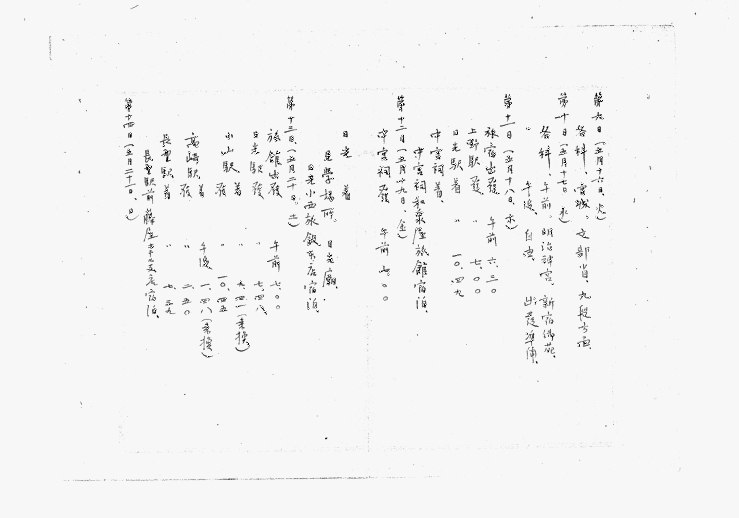 第九日(五月十六日、火)
各科、宮城、文部省、九段方面、
第十日(五月十七日、水)
各科、午前、明治神宮、新宿御苑、
〃 午後、自由、出発準備、
第十一日(五月十八日、木)
旅宿出発、午前 六、三〇
上野駅発 〃 七、〇〇
日光駅着 〃 一〇、四九
中宮祠着、
中宮祠和泉屋旅館宿泊、
第十二日(五月十九日、金)
中宮祠発 午前 七、〇〇
日光 着
見学場所。日光廟、
日光小西旅館本店宿泊、
第十三日、(五月二十日、土)
旅館出発 午前 七、〇〇
日光駅発 〃 七、四八、
小山駅 着 〃 九、四一(乗換)
発 一〇、四五
高崎駅 着 午後 一、四八(乗換)
発 〃 二、五〇
長野駅着 〃 七、三九
長野駅前藤屋 支店宿泊、
第十四日(五月二十一日、日)